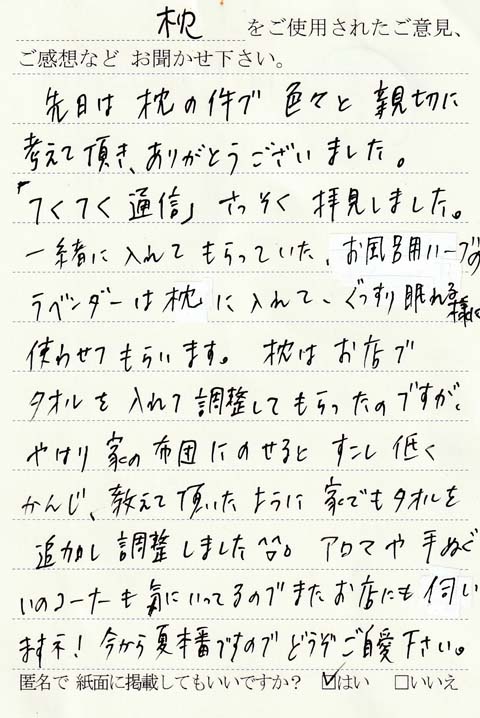 枕 をご使用されたご意見、
ご感想など お聞かせ下さい。
先日は 枕の件で 色々と 親切に
考えて頂き、ありがとうございました。
「てくてく通信」 さっそく 拝見しました。
一緒に 入れて もらっていた、お風呂用ハーブの
ラベンダーは 枕に 入れて、ぐっすり 眠れる様に
使わせて もらいます。 枕は お店で
タオルを 入れて 調整して もらったの ですが、
やはり 家の 布団に のせると すこし 低く
かんじ、教えて 頂いた ように 家でも タオルを
追加し 調整しました ^^。 アロマや 手ぬぐ
いのコーナーも 気に いってるので また お店にも 伺い
ますネ! 今から 夏本番ですので どうぞ ご自愛 下さい。
匿名で 紙面に掲載してもいいですか? ☑はい □いいえ